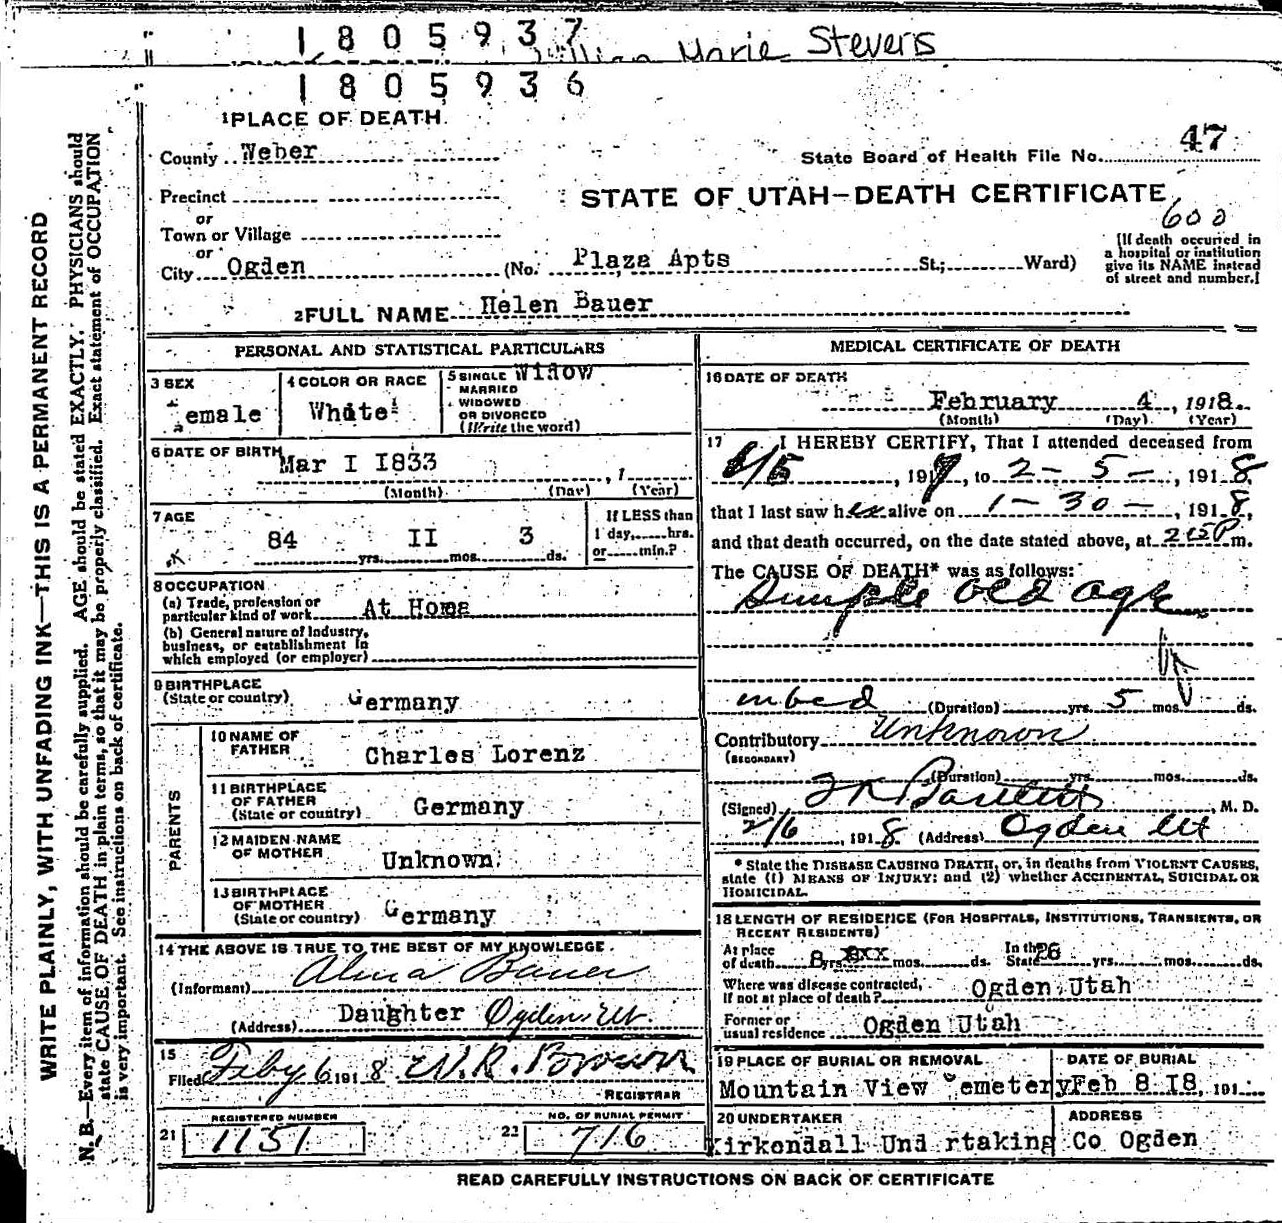 1805937
Marie Stevens
1805936
1 PLACE OF DEATH
County Weber
State Board of Health File No. 47
Precinct
STATE OF UTAH—DEATH CERTIFICATE
or
600
Town or Village
or
City Ogden (No. Plaza Apts St.; Ward)
(If death occurred in
a hospital or institution
give its NAME instead
of street and number.)
2 FULL NAME Helen Bauer
PERSONAL AND STATISTICAL PARTICULARS
3 SEX
emale
4 COLOR OR RACE
White
5 SINGLE Widow
MARRIED
WIDOWED
OR DIVORCED
(Write the word)
6 DATE OF BIRTH Mar I I833 , 1
(Month) (Day) (Year)
7 AGE
84 yrs. II mos. 3 ds.
If LESS than
1 day, hrs.
or min.?
8 OCCUPATION
(a) Trade, profession or
particular kind of work At Home
(b) General nature of Industry,
business, or establishment in
which employed (or employer)
9 BIRTHPLACE
(State or country) Germany
PARENTS
10 NAME OF
FATHER Charles Lorenz
11 BIRTHPLACE
OF FATHER
(State or country) Germany
12 MAIDEN NAME
OF MOTHER Unknown
13 BIRTHPLACE
OF MOTHER
(State or country) Germany
14 THE ABOVE IS TRUE TO THE BEST OF MY KNOWLEDGE.
(Informant) Alma Bauer
(Address) Daughter Ogden Ut.
15
Filed Feby 6 191 8 W. R. Brown
REGISTRAR
REGISTERED NUMBER
21 1131
NO. OF BURIAL PERMIT
22 716
MEDICAL CERTIFICATE OF DEATH
16 DATE OF DEATH
February 4, 1918.
(Month) (Day) (Year)
17 I HEREBY CERTIFY, That I attended deceased from
, 191 to 2-5-, 1918
that I last saw her alive on 1-30-, 1918,
and that death occurred, on the date stated above, at m.
The CAUSE OF DEATH* was as follows:
Simple old age
in bed (Duration) yrs. 5 mos. ds.
Contributory Unknown
(SECONDARY)
(Duration) yrs. mos. ds.
(Signed) Bartlett, M. D.
2/6, 1918 (Address) Ogden Ut
* State the DISEASE CAUSING DEATH, or, in deaths from VIOLENT CAUSES,
state (1) MEANS OF INJURY; and (2) whether ACCIDENTAL, SUICIDAL OR
HOMICIDAL.
18 LENGTH OF RESIDENCE (FOR HOSPITALS, INSTITUTIONS, TRANSIENTS, OR
RECENT RESIDENTS)
At place
of death 8 yrs. xxx mos. ds.
In the
State 26 yrs. mos. ds.
Where was disease contracted,
if not at place of death? Ogden Utah
Former or
usual residence Ogden Utah
19 PLACE OF BURIAL OR REMOVAL
Mountain View emetery
DATE OF BURIAL
Feb 8 I8, 191
20 UNDERTAKER
Kirkendall Und rtaking Co Ogden
ADDRESS
READ CAREFULLY INSTRUCTIONS ON BACK OF CERTIFICATE
WRITE PLAINLY, WITH UNFADING INK—THIS IS A PERMANENT RECORD
N. B.—Every item of information should be carefully supplied. AGE should be stated EXACTLY. PHYSICIANS should
state CAUSE OF DEATH in plain terms, so that it may be properly classified. Exact statement of OCCUPATION
is very important. See instructions on back of certificate.